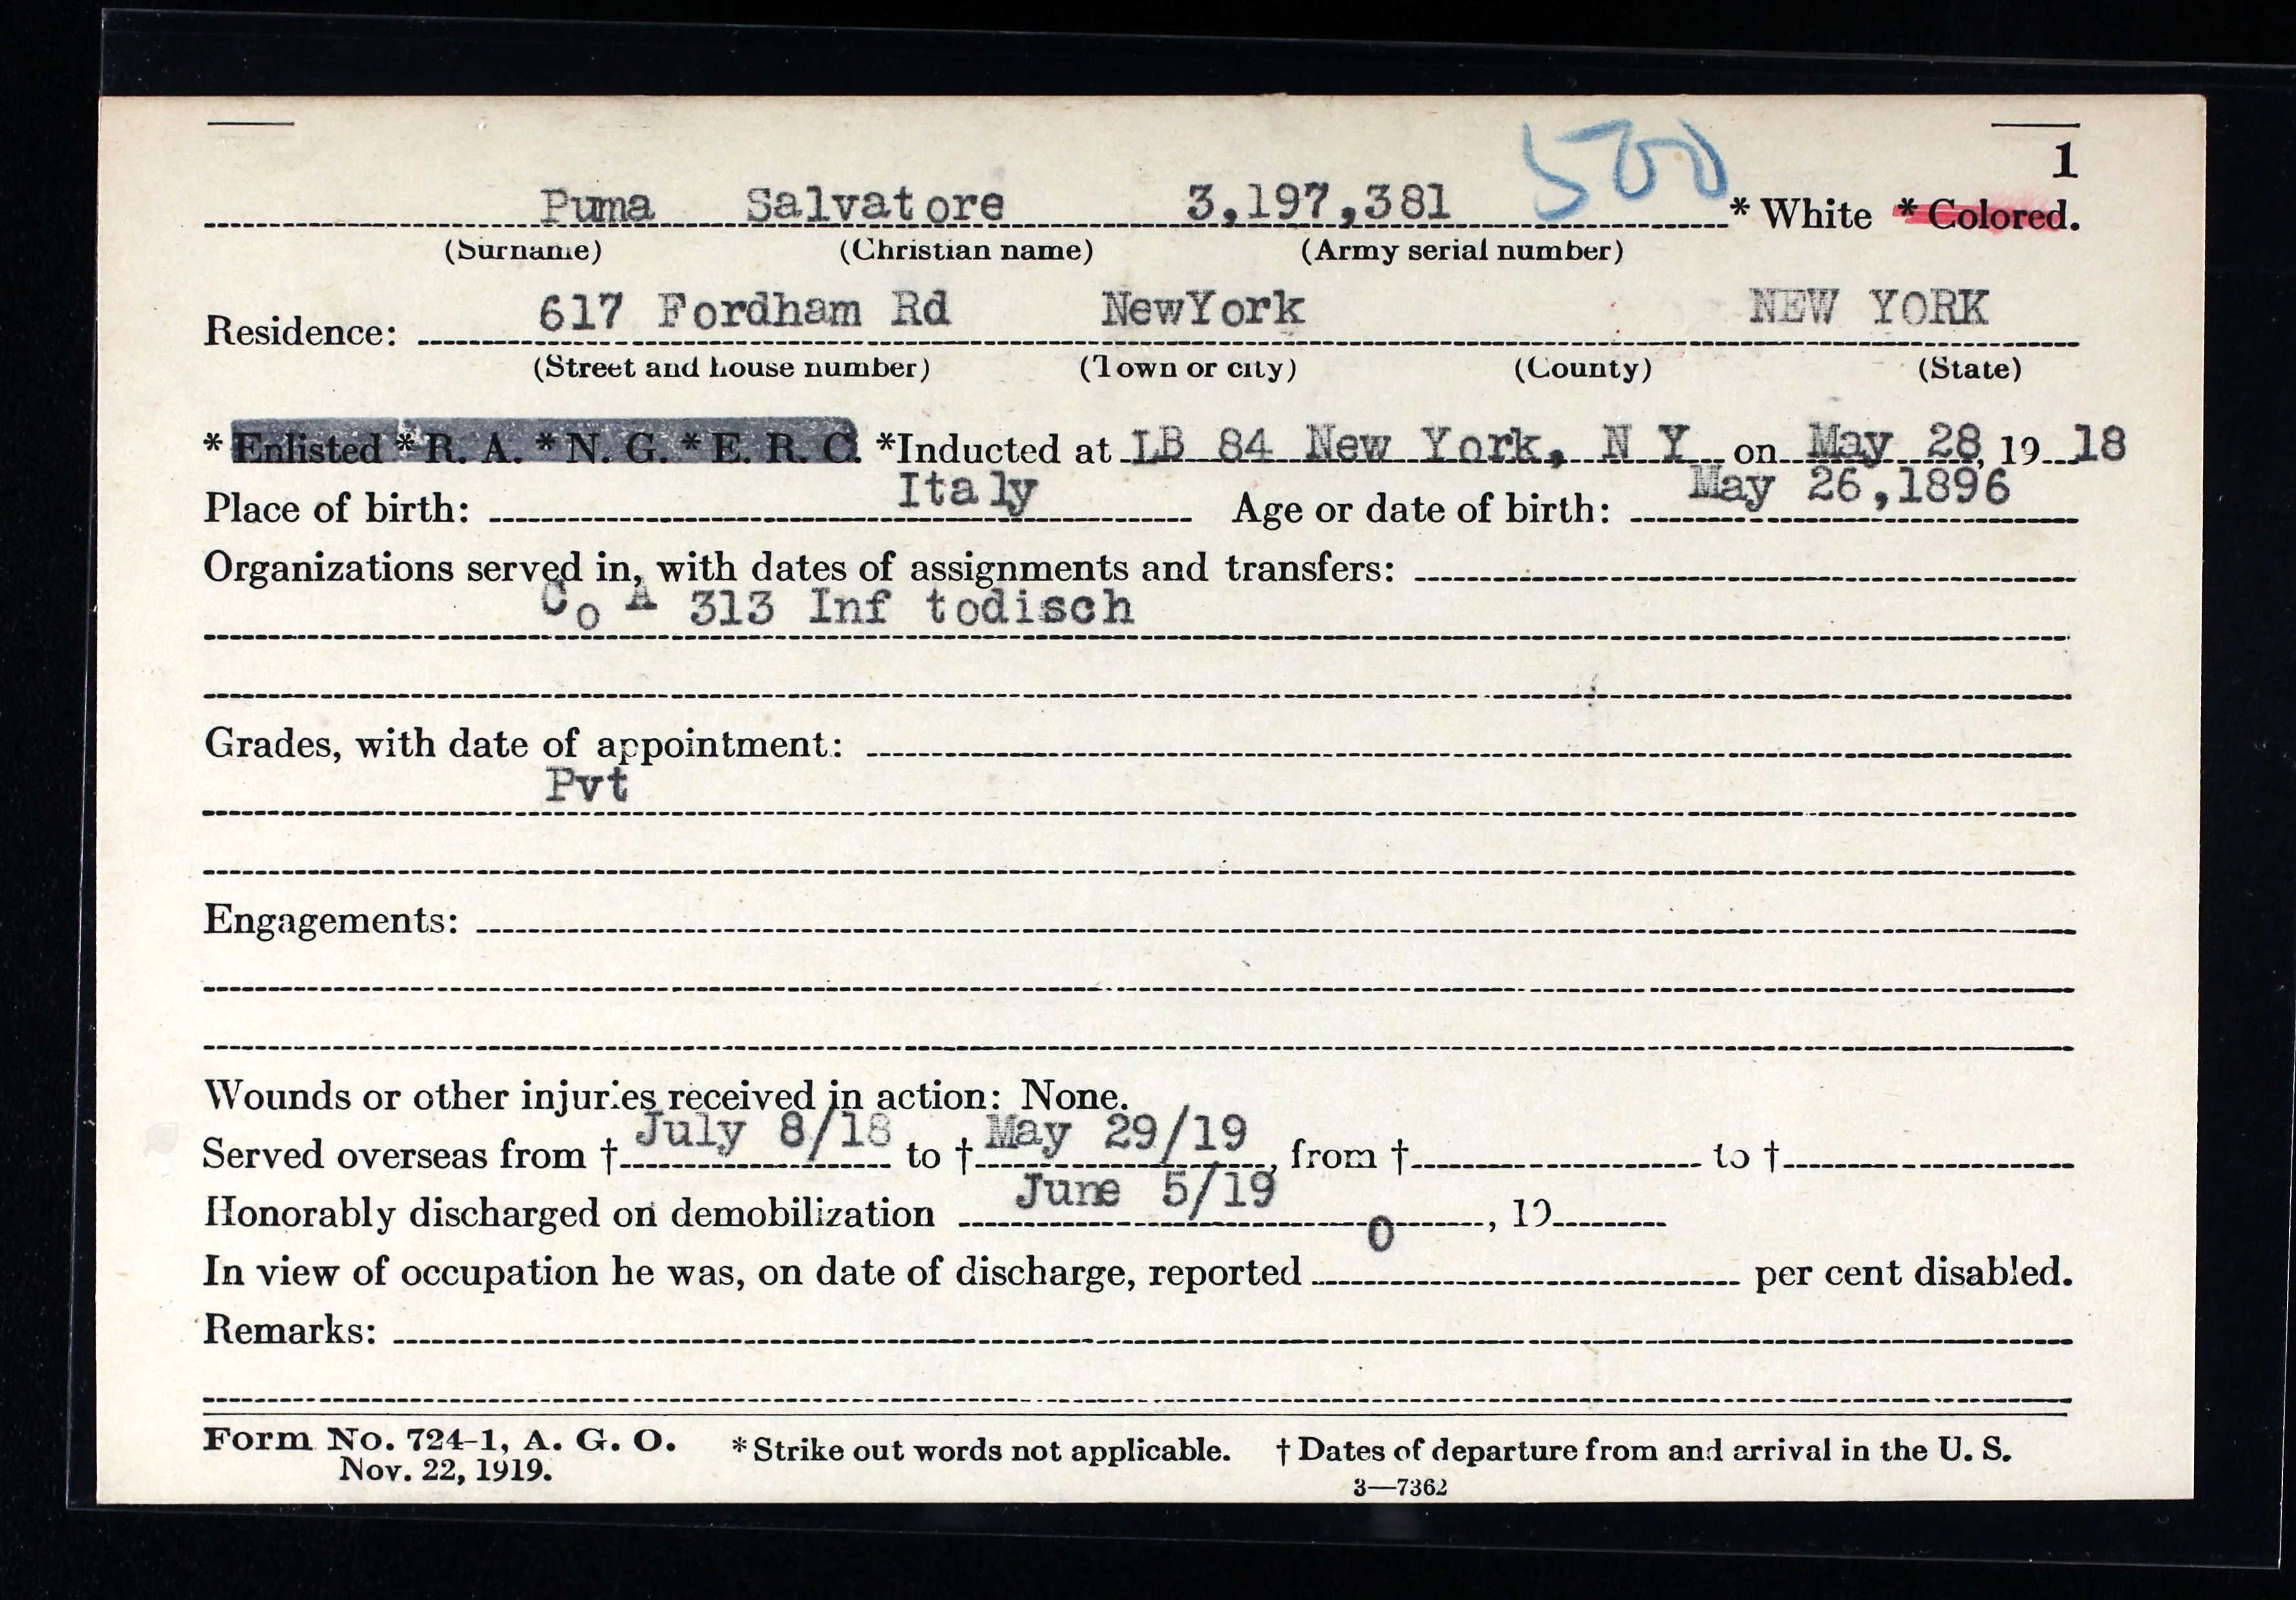 500
1
Puma Salvatore 3,197,381 * White * Colored.
(Surname) (Christian name) (Army serial number)
617 Fordham Rd NewYork NEW YORK
Residence:
(Street and house number) (Town or city) (County) (State)
* Enlisted * R. A. * N. G. * E. R. C. *Inducted at LB 84 New York, N Y on May 28, 19 18
Place of birth: Italy Age or date of birth: May 26,1896
Organizations served in, with dates of assignments and transfers:
Co A 313 Inf todisch
Grades, with date of appointment:
Pvt
Engagements:
Wounds or other injuries received in action: None.
Served overseas from † July 8/18 to † May 29/19, from † to †
Honorably discharged on demobilization June 5/19, 19
In view of occupation he was, on date of discharge, reported 0 per cent disabled.
Remarks:
Form No. 724-1, A. G. O. * Strike out words not applicable. † Dates of departure from and arrival in the U. S.
Nov. 22, 1919.
3—7362